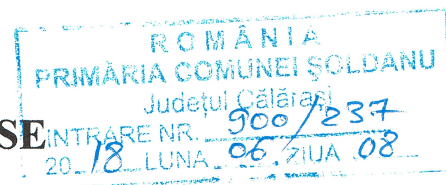 ROMÂNIA
PRIMĂRIA COMUNEI ȘOLDANU
Județul Călărași
SE INTRARE NR. 900/237
2018 LUNA 06 ZIUA 08